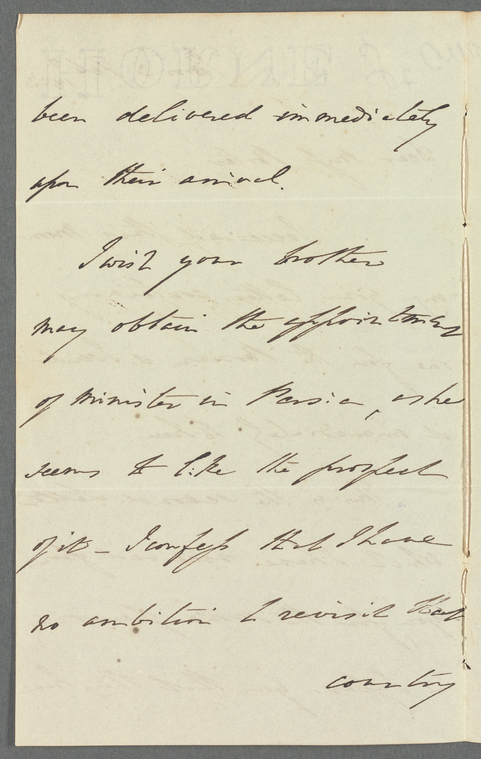 been delivered immediately
upon their arrival.
I wish your brother
may obtain the appointment
of minister in Persia, as he
seems to like the prospect
of it - I confess that I have
no ambition to revisit that
country